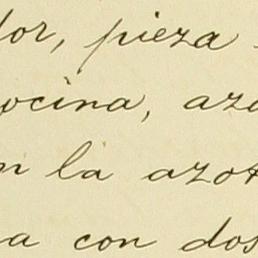 dor, pieza
ocina, azo
n la azot
a con dos